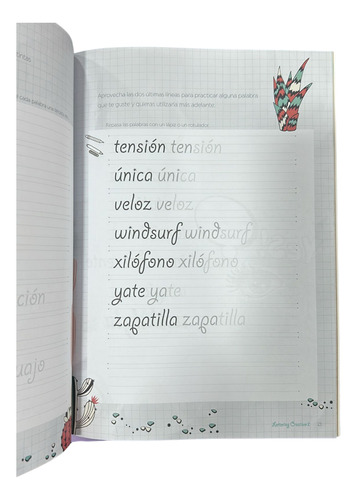 Aprovecha las dos últimas líneas para practicar alguna palabra
que te guste y quieras utilizarla más adelante.
Repasa las palabras con un lápiz o un rotulador.
tensión tensión
única única
veloz veloz
windsurf windsurf
xilófono xilófono
yate yate
zapatilla zapatilla
ción
uajo